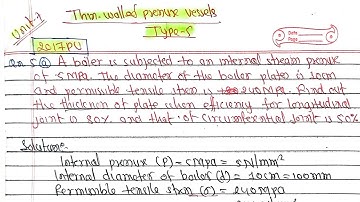 Unit-7
Thin walled pressure vessels
Type-5
Date
Page
2017 PU
Qn. 5(a) A boiler is subjected to an internal steam pressure
of 5 MPa. The diameter of the boiler plates is 10cm
and permissible tensile stress is 240 MPa. Find out
the thickness of plate when efficiency for longitudinal
joint is 80% and that of circumferential joint is 50%
Solution:
Internal pressure (P) = 5mpa = 5N/mm²
Internal diameter of boiler (d) = 10cm = 100mm
Permissible tensile stress (σ) = 240Mpa